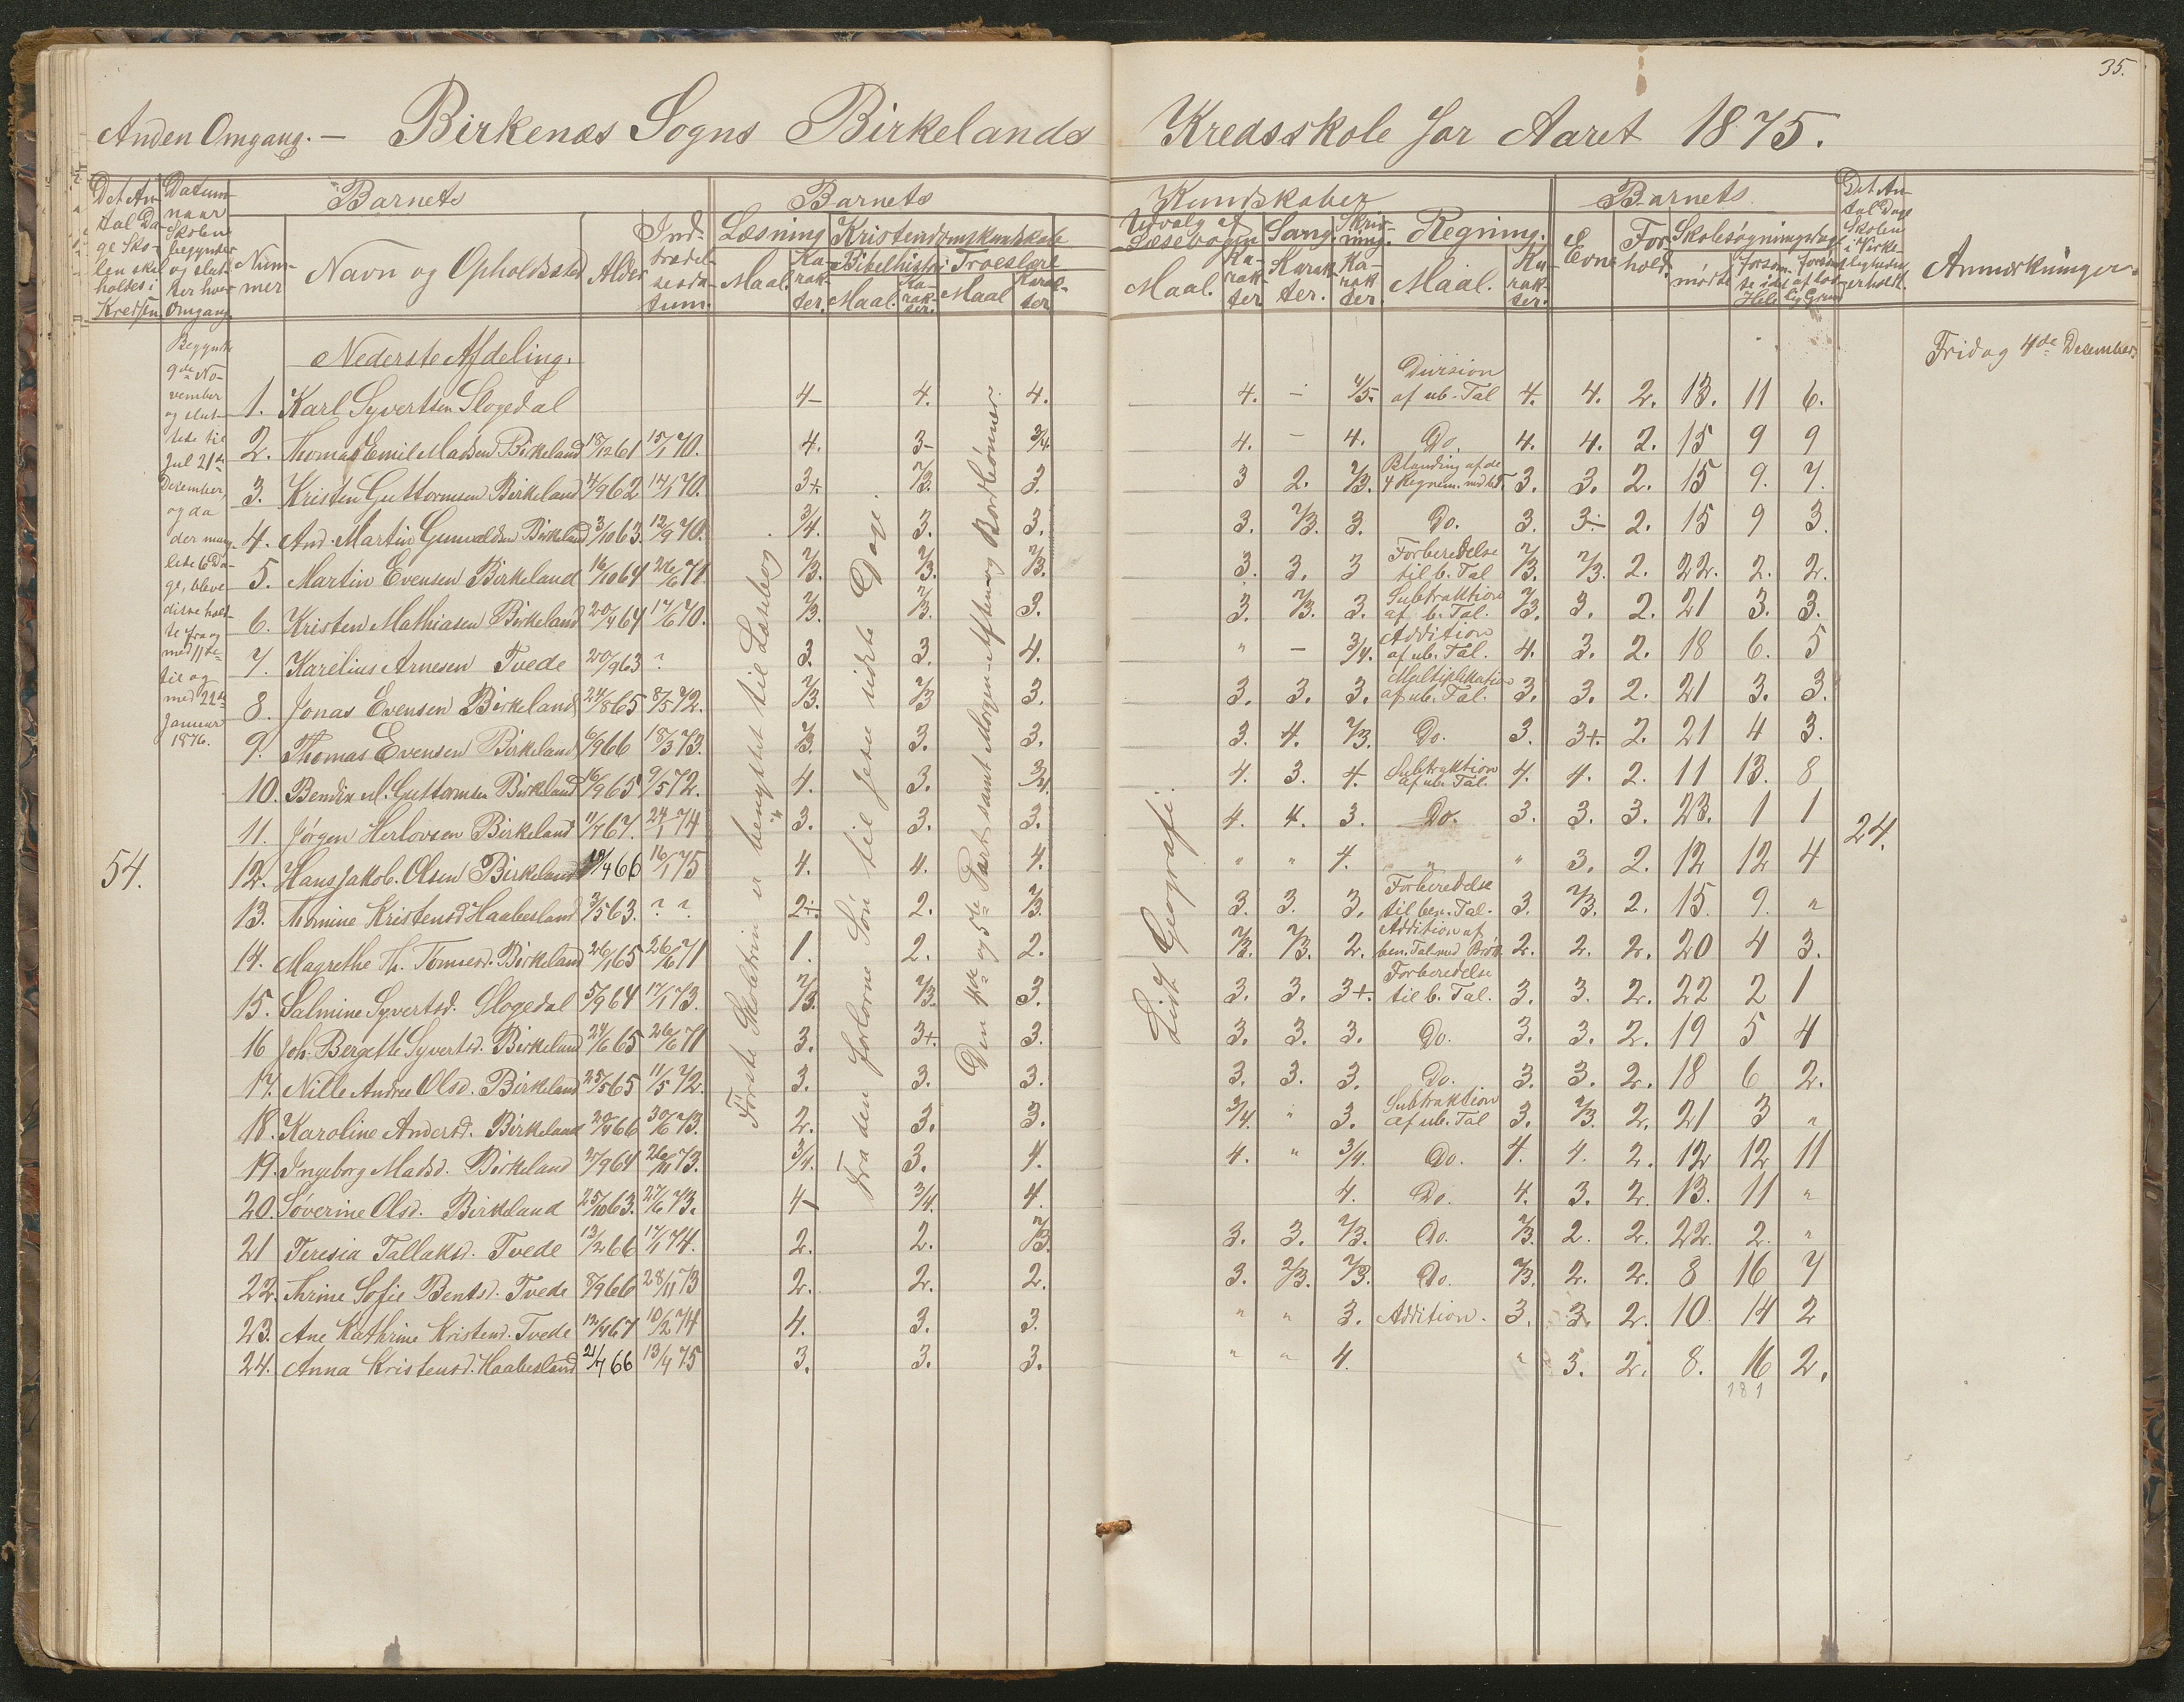 35.
Anden Omgang. — Birkenæs Sogns Birkelands Kredsskole for Aaret 1875.
Det An-
tal Da-
ge Sko-
len skal
holdes i
Kredsen.
Datum
naar
Skolen
begynder
og slut-
ter hver
Omgang.
Barnets
Num-
mer
Navn og Opholdssted
Alder
Ind-
trædel-
sesda-
tum.
Barnets Kundskaber
Læsning
Maal.
Ka-
rak-
ter.
Kristendomskundskab
Bibelhistorie
Maal.
Ka-
rak-
ter.
Troeslære
Maal
Karak-
ter
Udvalg af
Læsebogen
Maal.
Ka-
rak-
ter
Sang.
Karak-
ter.
Skriv-
ning.
Ka-
rak-
ter.
Regning.
Maal.
Ka-
rak-
ter.
Barnets
Evne
For-
hold.
Skolesøgningsdage
mødte
forsøm-
te i det
Hele
forsømt
af lov-
lig Grund
Det An-
tal Dage
Skolen
i Virke-
ligheden
erholdt.
Anmærkninger.
Begyndte
9de No-
vember
og slut-
tede til
Jul 21de
Desember,
og da
der mang-
lede 6 Da-
ge, bleve
disse hold-
te fra og
med 11te
til og
med 22de
Januar
1876.
54.
Nederste Afdeling.
Første Skoletrin er benyttet til Læsebog
Fra den forlorne Søn til Jesu sidste Dage.
Den 4de og 5te Part samt Morgen- Aften- og Bordbønner.
Lidt Geografi.
24.
Fridag 4de Desember.
1. Karl Syvertsen Slogedal 4- 4. 4. 4. - 4/5. Division af ub. Tal 4. 4. 2. 13. 11 6.
2. Thomas Emil Madsen Birkeland 18/12 61 15/1 70. 4. 3- 3/4. 4. - 4. Do. 4. 4. 2. 15 9 9
3. Kristen Guttormsen Birkeland 14/9 62 14/1 70. 3+. 2/3. 3. 3 2. 2/3. Blanding af de 4 Regnem. med b.T. 3. 3. 2. 15 9. 7.
4. And. Martin Gunvaldsen Birkeland 3/10 63. 12/9 70. 3/4. 3. 3. 3. 2/3. 3. Do. 3. 3- 2. 15 9 3.
5. Martin Evensen Birkeland 16/10 64 26/6 71. 2/3. 2/3. 2/3. 3. 3. 3 Forberedelse til b. Tal 2/3. 2/3. 2. 22. 2. 2.
6. Kristen Mathiasen Birkeland 20/4 64 17/6 70. 2/3. 2/3. 3. 3. 2/3. 3. Subtraktion af b. Tal. 2/3. 3. 2. 21 3. 3.
7. Karelius Arnesen Tvede 20/9 63 ? 3. 3. 4. " - 3/4. Addition af ub. Tal. 4. 3. 2. 18 6. 5
8. Jonas Evensen Birkeland 24/8 65 8/5 72. 2/3. 2/3 3. 3. 3. 3. Multiplikation af ub. Tal. 3. 3. 2. 21 3. 3.
9. Thomas Evensen Birkeland 6/9 66 18/3 73. 2/3. 3. 3. 3. 4. 2/3. Do. 3. 3+. 2. 21 4 3.
10. Bendix M. Guttormsen Birkeland 16/9 65 9/5 72. 4. 3. 3/4. 4. 3. 4. Subtraktion af ub. Tal. 4. 4. 2. 11 13. 8
11. Jørgen Herlovsen Birkeland 11/7 67. 24/1 74 3. 3. 3. 4. 4. 3. Do. 3. 3. 3. 23. 1 1
12. Hans Jakob. Olsen Birkeland /4 66 16/1 75 4. 4. 4. " " 4. " " 3. 2. 12 12 4
13. Tomine Kristensd. Haabesland 3/5 63. ? ? 2+. 2. 2/3. 3. 3. 3. Forberedelse til ben. Tal. 3. 2/3. 2. 15. 9. "
14. Magrethe Th. Tomasd. Birkeland 26/1 65 26/6 71 1. 2. 2. 2/3. 2/3. 2. Addition af ben. Tal med Brøk. 2. 2. 2. 20 4 3.
15. Salmine Syvertsd. Slogedal 5/9 64 17/1 73. 2/3. 2/3. 3. 3. 3. 3+. Forberedelse til b. Tal. 3. 3. 2. 22 2 1
16 Joh. Bergette Syvertsd. Birkeland 24/6 65 26/6 71 3. 3+. 3. 3. 3. 3. Do. 3. 3. 2. 19 5 4
17. Nille Andrea Olsd. Birkeland 25/5 65 11/5 72. 3. 3. 3. 3. 3. 3. Do. 3. 3. 2. 18 6 2.
18. Karoline Andersd. Birkeland 20/4 66 30/6 73. 2. 3. 3. 3/4. " 3. Subtraktion af ub. Tal 3. 2/3. 2. 21 3 "
19. Ingeborg Madsd. Birkeland 27/9 64 26/11 73. 3/4. 3. 4. 4. " 3/4. Do. 4. 4. 2. 12 12 11
20. Søverine Olsd. Birkeland 25/10 63. 27/6 73. 4- 3/4. 4. 4. Do. 4. 3. 2. 13. 11 "
21 Teresia Tallaksd. Tvede 13/2 66 17/1 74. 2. 2. 2/3. 3. 3. 2/3. Do. 2/3. 2. 2. 22. 2. "
22. Trine Sofie Bentsd. Tvede 8/9 66 28/11 73 2. 2. 2. 3. 2/3. 2/3. Do. 2/3. 2. 2. 8 16 7
23. Ane Kathrine Kristensd. Tvede 12/4 67 10/2 74 4. 3. 3. " " 3. Addition. 3. 3. 2. 10. 14 2
24. Anna Kristensd. Haabesland 21/7 66 13/4 75 3. 3. 3. " " 4. " 3. 2. 8. 16 2.
181